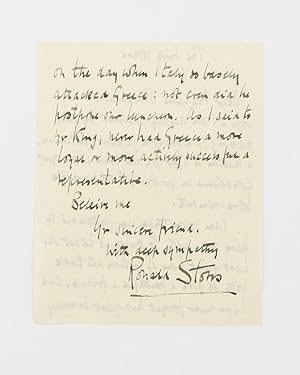 on the day when Italy so basely
attacked Greece: not even did he
postpone our luncheon. As I said to
yr King, never had Greece a more
loyal or more actively successful a
representative.
Believe me
Yr sincere friend,
with deep sympathy
Ronald Storrs